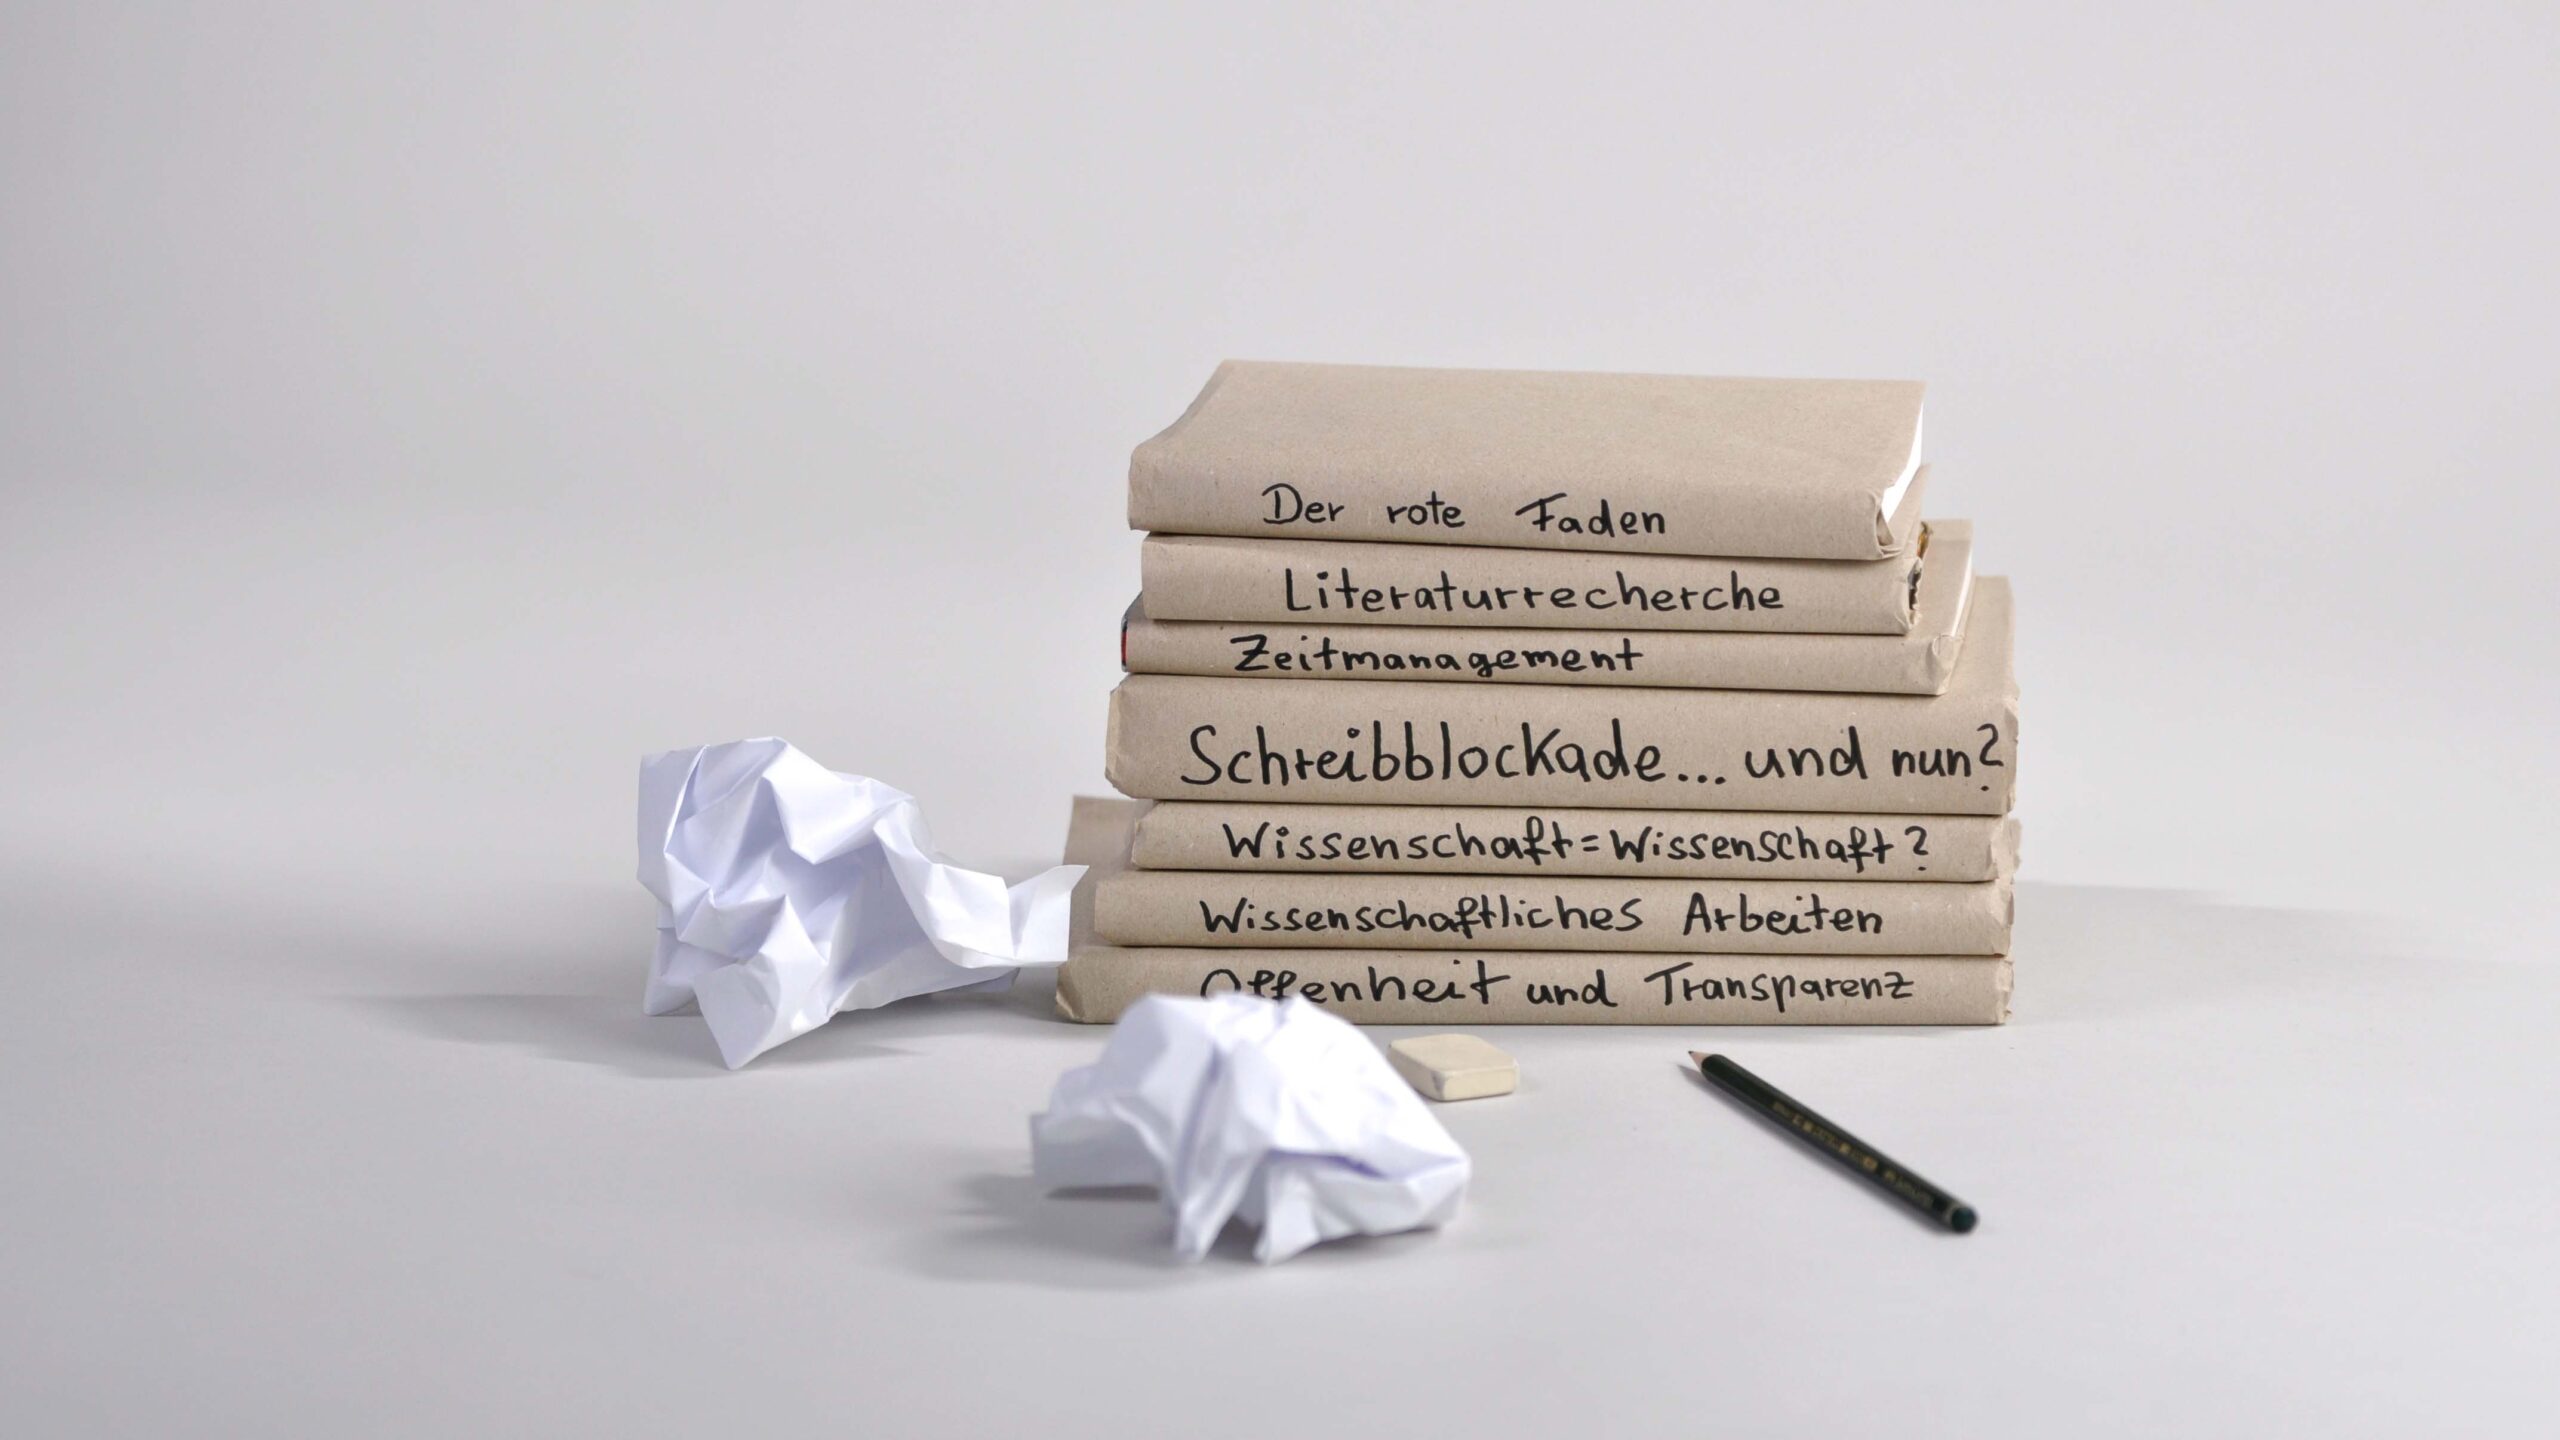 Der rote Faden
Literaturrecherche
Zeitmanagement
Schreibblockade... und nun?
Wissenschaft = Wissenschaft?
Wissenschaftliches Arbeiten
Offenheit und Transparenz